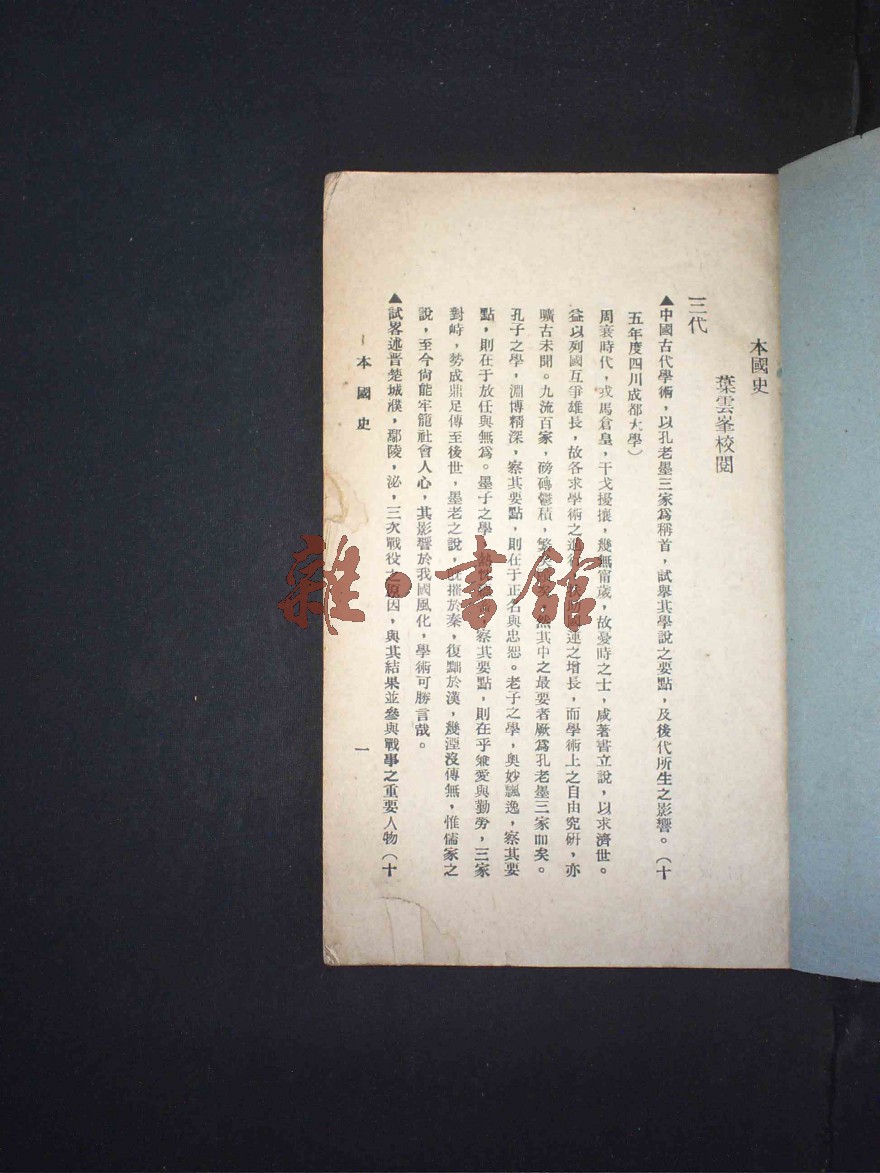 本國史
葉雲峯校閱
三代
▲中國古代學術，以孔老墨三家爲稱首，試舉其學說之要點，及後代所生之影響。（十
五年度四川成都大學）
周衰時代，戎馬倉皇，干戈擾攘，幾無甯歲，故憂時之士，咸著書立說，以求濟世。
益以列國互爭雄長，故各求學術之進，之增長，而學術上之自由究硏，亦
曠古未聞。九流百家，磅礴鬱積，繁，然其中之最要者厥爲孔老墨三家而矣。
孔子之學，淵博精深，察其要點，則在于正名與忠恕。老子之學，奧妙飄逸，察其要
點，則在于放任與無爲。墨子之學，察其要點，則在乎兼愛與勤勞，三家
對峙，勢成鼎足傳至後世，墨老之說，旣摧於秦，復黜於漢，幾湮沒傳無，惟儒家之
說，至今尙能牢籠社會人心，其影響於我國風化，學術可勝言哉。
▲試畧述晋楚城濮，鄢陵，泌，三次戰役之原因，與其結果並參與戰事之重要人物（十
本國史 一
雜·書館